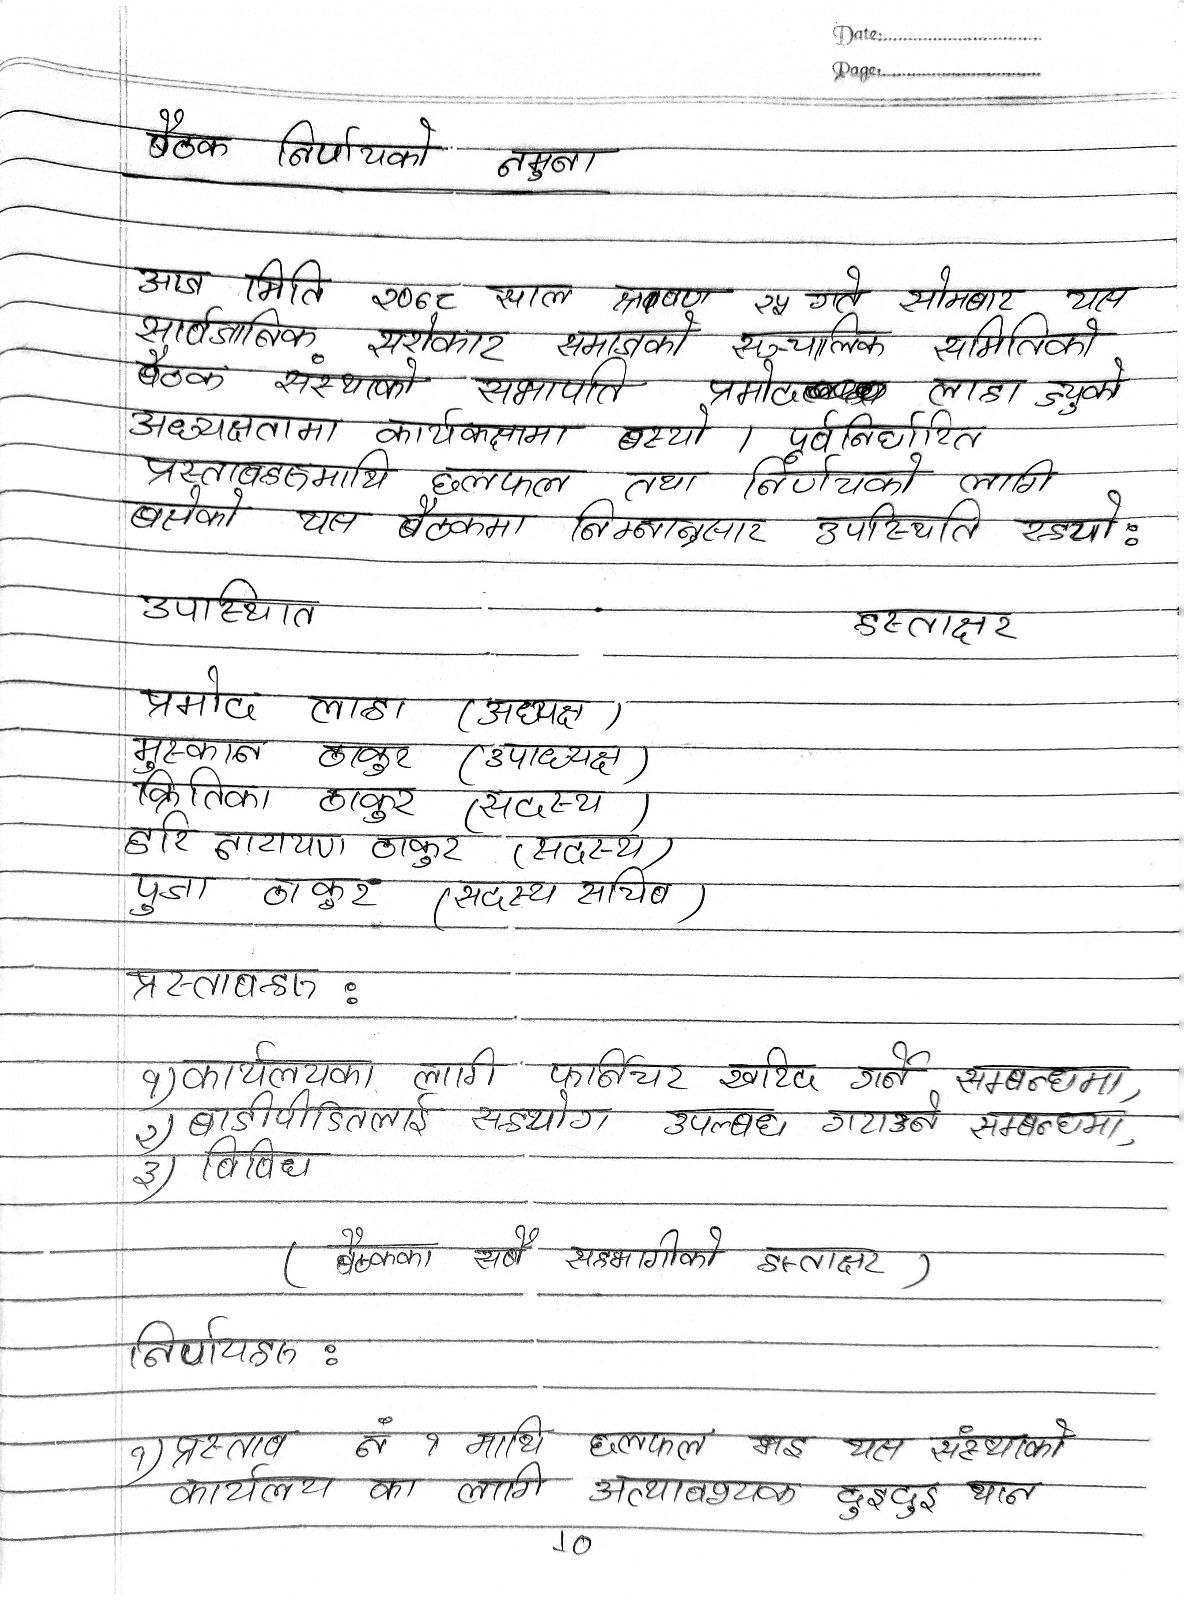 Date:
Page:
बैठक निर्णयको नमुना
आज मिति २०६८ साल श्रावण २५ गते सोमबार यस
सार्वजानिक सरोकार समाजको सञ्चालिक समितिको
बैठक संस्थाको सभापति प्रमोद लाहा ज्युको
अध्यक्षतामा कार्यकक्षामा बस्यो । पूर्वनिर्धारित
प्रस्ताबहरुमाथि छलफल तथा निर्णयको लागि
बसेको यस बैठकमा निम्नानुसार उपस्थिति रहयो:
उपास्थित हस्ताक्षर
प्रमोद लाहा (अध्यक्ष)
मुस्कान ठाकुर (उपाध्यक्ष)
क्रितिका ठाकुर (सदस्य)
हरि नारायण ठाकुर (सदस्य)
पुजा ठाकुर (सदस्य सचिब)
प्रस्ताबहरु :
१) कार्यलयका लागि फर्निचर खरिद गर्ने सम्बन्धमा,
२) बाढीपीडितलाई सहयोग उपल्बध गराउने सम्बन्धमा,
३) बिबिध
( बैठकका सबै सहभागीको हस्ताक्षर )
निर्णयहरु :
१) प्रस्ताब नं १ माथि छलफल भइ यस संस्थाको
कार्यलय का लागि अत्याबश्यक दुइदुइ थान
10